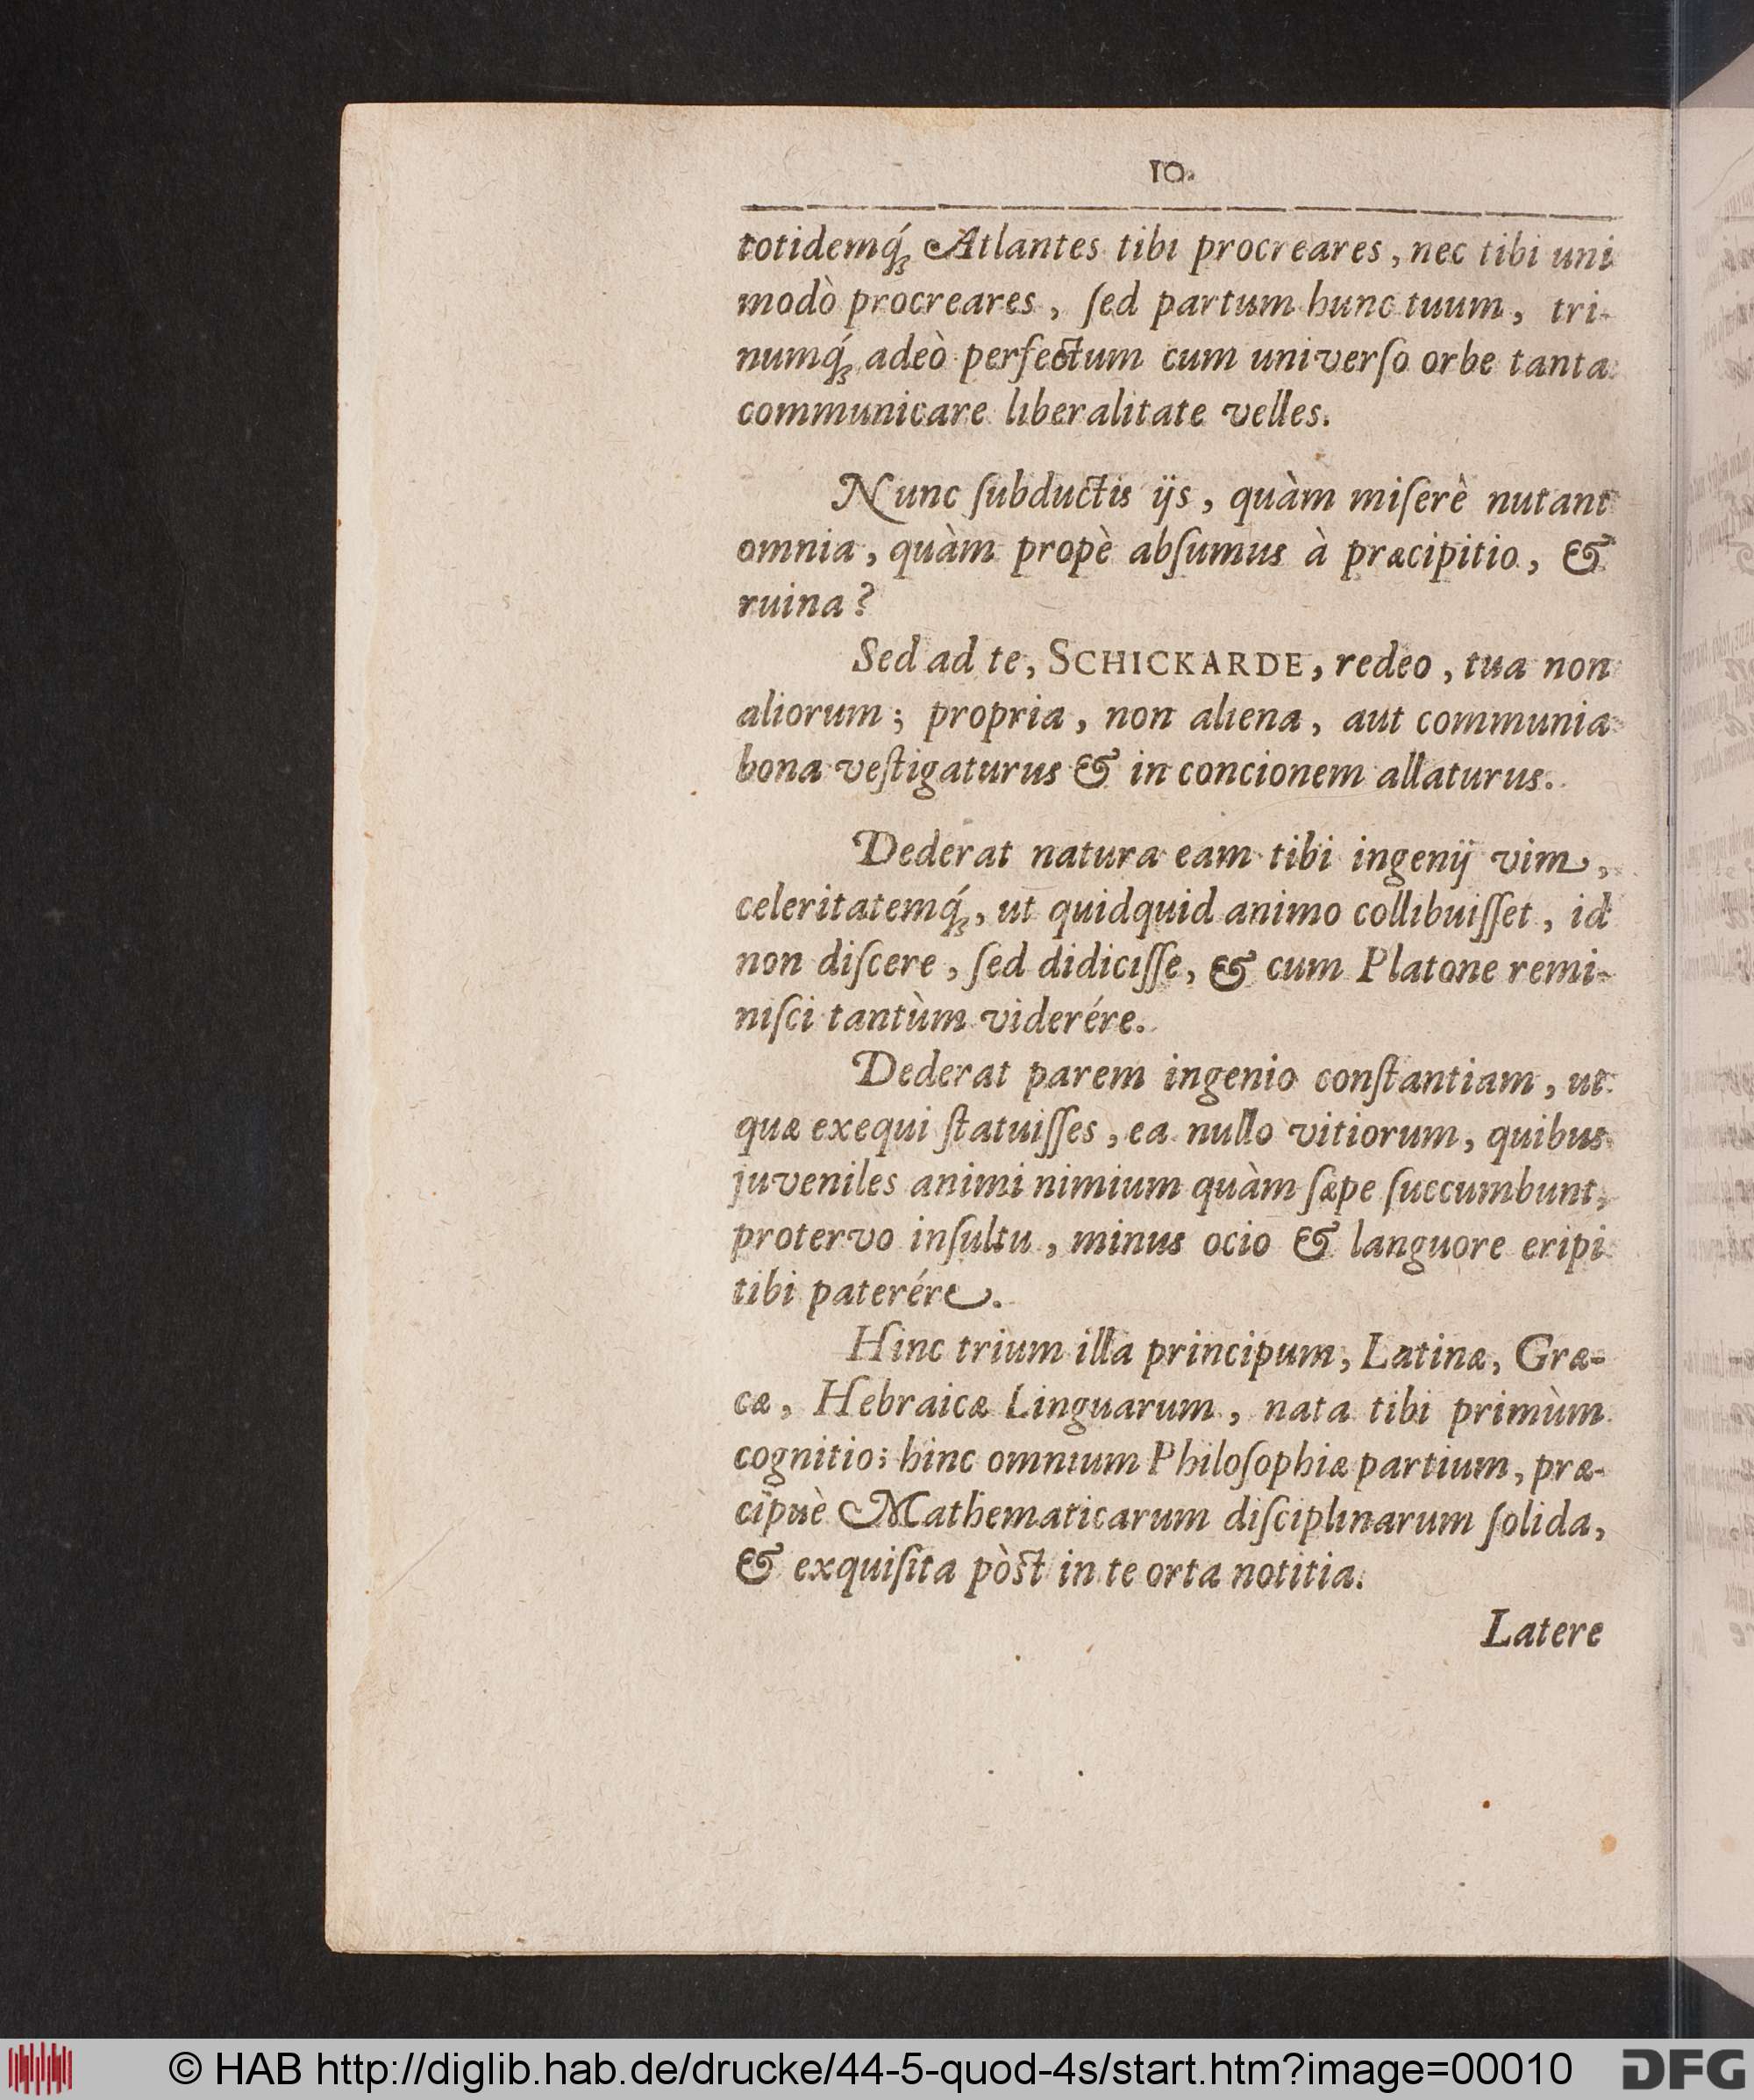 10.
totidemq́ꝫ Atlantes tibi procreares, nec tibi uni
modò procreares, ſed partum hunc tuum, tri-
numq́ꝫ adeò perfectum cum univerſo orbe tanta
communicare liberalitate velles.
Nunc ſubductis ijs, quàm miſerè nutant
omnia, quàm propè abſumus à præcipitio, &
ruina?
Sed ad te, SCHICKARDE, redeo, tua non
aliorum; propria, non aliena, aut communia
bona veſtigaturus & in concionem allaturus.
Dederat natura eam tibi ingenij vim,
celeritatemq́ꝫ, ut quidquid animo collibuiſſet, id
non diſcere, ſed didiciſſe, & cum Platone remi-
niſci tantùm viderére.
Dederat parem ingenio conſtantiam, ut
quæ exequi ſtatuiſſes, ea nullo vitiorum, quibus
juveniles animi nimium quàm ſæpe ſuccumbunt,
protervo inſultu, minus ocio & languore eripi
tibi paterére.
Hinc trium illa principum, Latinæ, Græ-
cæ, Hebraicæ Linguarum, nata tibi primùm
cognitio; hinc omnium Philoſophiæ partium, præ-
cipuè Mathematicarum diſciplinarum ſolida,
& exquiſita pòst in te orta notitia.
Latere
© HAB http://diglib.hab.de/drucke/44-5-quod-4s/start.htm?image=00010
DFG